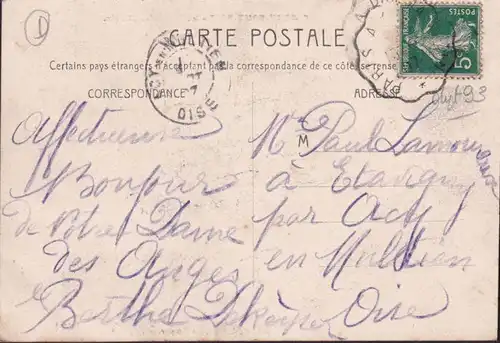 CARTE POSTALE
Certains pays étrangers n'acceptant pas la correspondance de ce côté se rense
CORRESPONDANCE
ADRESSE
POSTES
5
PARIS A
OISE
dept 93
D
M
Affectueux
Bonjour
de Notre Dame
des Anges
Berthe
Mr Paul Lamou
à Etavigny
par Acy
en Multien
Oise